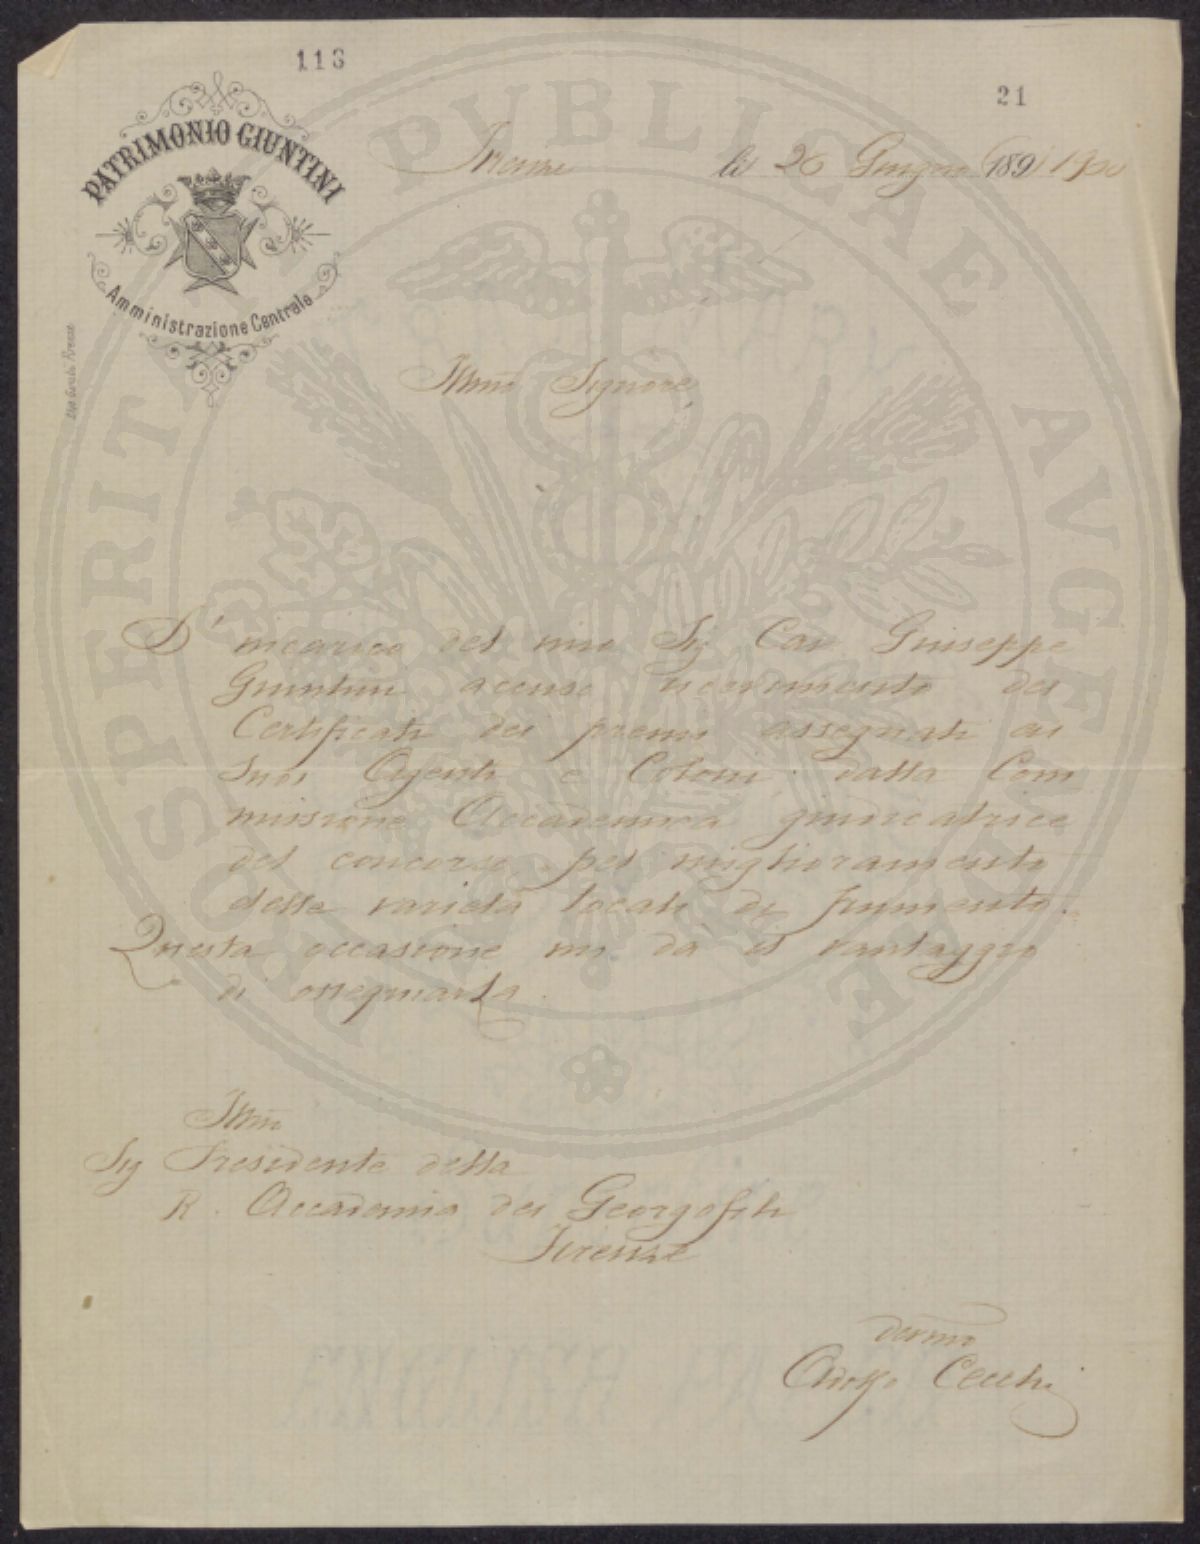 113
21
PATRIMONIO GIUNTINI
Amministrazione Centrale
Firenze li 26 Giugno 189 1900
Illmo Signore,
D'incarico del mio Sig Cav Giuseppe
Giuntini accuso ricevimento dei
Certificati dei premi assegnati ai
Suoi Agenti e Coloni dalla Com
missione Accademica giudicatrice
del concorso pel miglioramento
delle varietà locali di frumento.
Questa occasione mi dà il vantaggio
di ossequiarla.
Illmo
Sig Presidente della
R. Accademia dei Georgofili
Firenze
devmo
Adolfo Cecchi
PROSPERITATI PVBLICAE AVGENDAE